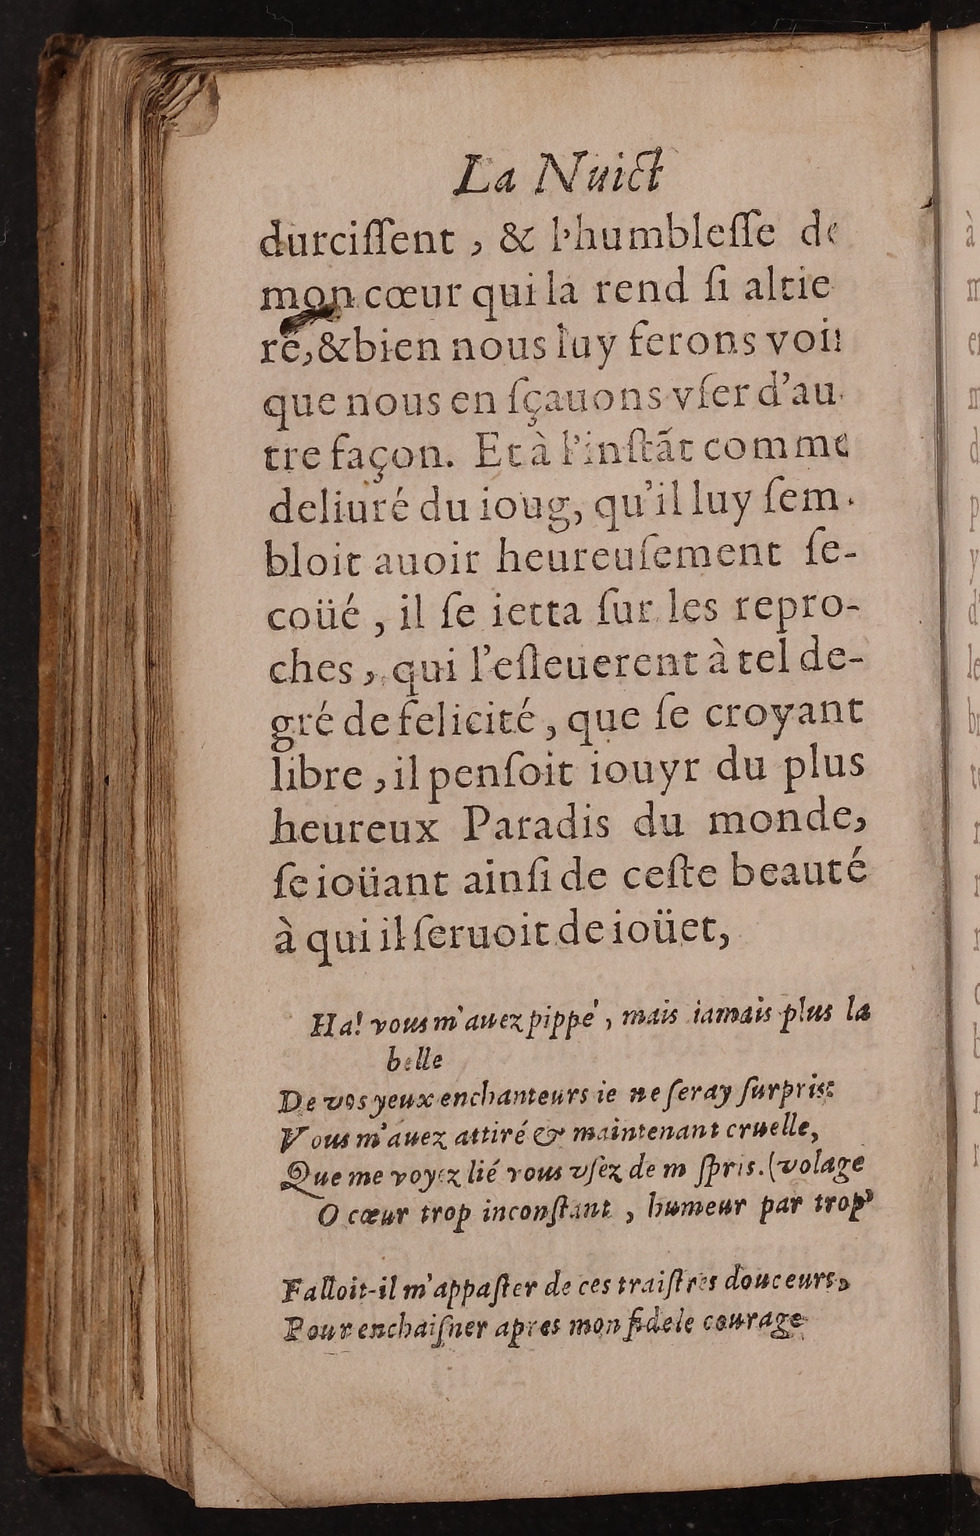 La Nuict
durciſſent , & l'humbleſſe de
mon cœur qui la rend ſi altie
re,&bien nous luy ferons voir
que nous en ſçauons vſer d'au
tre façon. Et à l'inſtãt comme
deliuré du ioug, qu'il luy ſem-
bloit auoir heureuſement ſe-
coüé , il ſe ietta ſur les repro-
ches , qui l'eſleuerent à tel de-
gré de felicité , que ſe croyant
libre , il penſoit iouyr du plus
heureux Paradis du monde,
ſe ioüant ainſi de ceſte beauté
à qui il ſeruoit de ioüet,
Ha! vous m'auez pippé , mais iamais plus la
belle
De vos yeux enchanteurs ie ne ſeray ſurpris:
Vous m'auez attiré & maintenant cruelle,
Que me voyez lié vous vſez de m ſpris. (volage
O cœur trop inconſtant , humeur par trop
Falloit-il m'appaſter de ces traiſtres douceurs,
Pour enchaiſner apres mon fidele courage